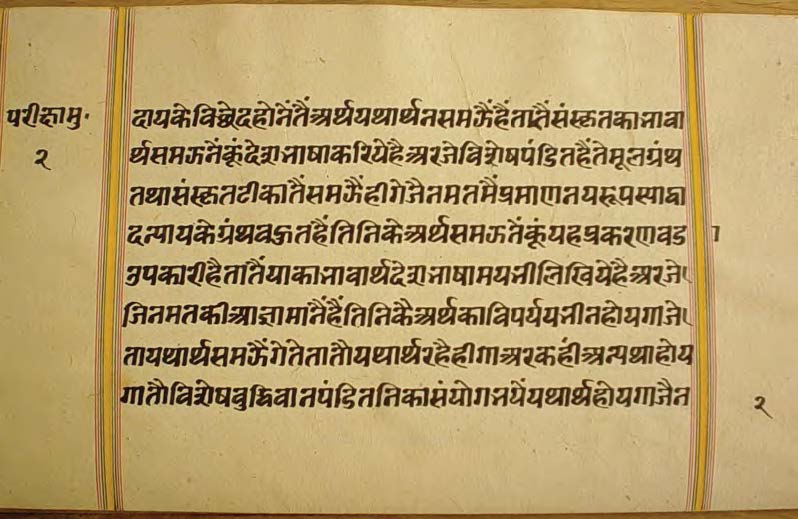 परीक्षामु॰
२
दायके विछेदहोनेंतैंअर्थयथार्थनसमझैंहैंतातैंसंस्कृतकाभावा
र्थसमझनैंकूंदेशभाषाकरियेहैअरजेविशेषपंडितहैंतेमूलग्रंथ
तथासंस्कृतटीकातैंसमझैंहीगेजैनमतमैंप्रमाणनयरूपस्याद्वा
दन्यायकेग्रंथबहुतहैंतिनिकेअर्थसमझनेंकूंयहप्रकरणवड ा
उपकारीहैतातैंयाकाभावार्थदेशभाषामयभीलिखियेहैअरजे
जिनमतकीआज्ञामांनैंहैंतिनिकैअर्थकाविपर्ययभीनहोयगाजे
तायथार्थसमझैंगेतेतातौयथार्थरहैहीगाअरकहींअन्यथाहोय
गातौविशेषबुद्धिवानपंडितनिकासंयोगभयेंयथार्थहोयगाजैन
२